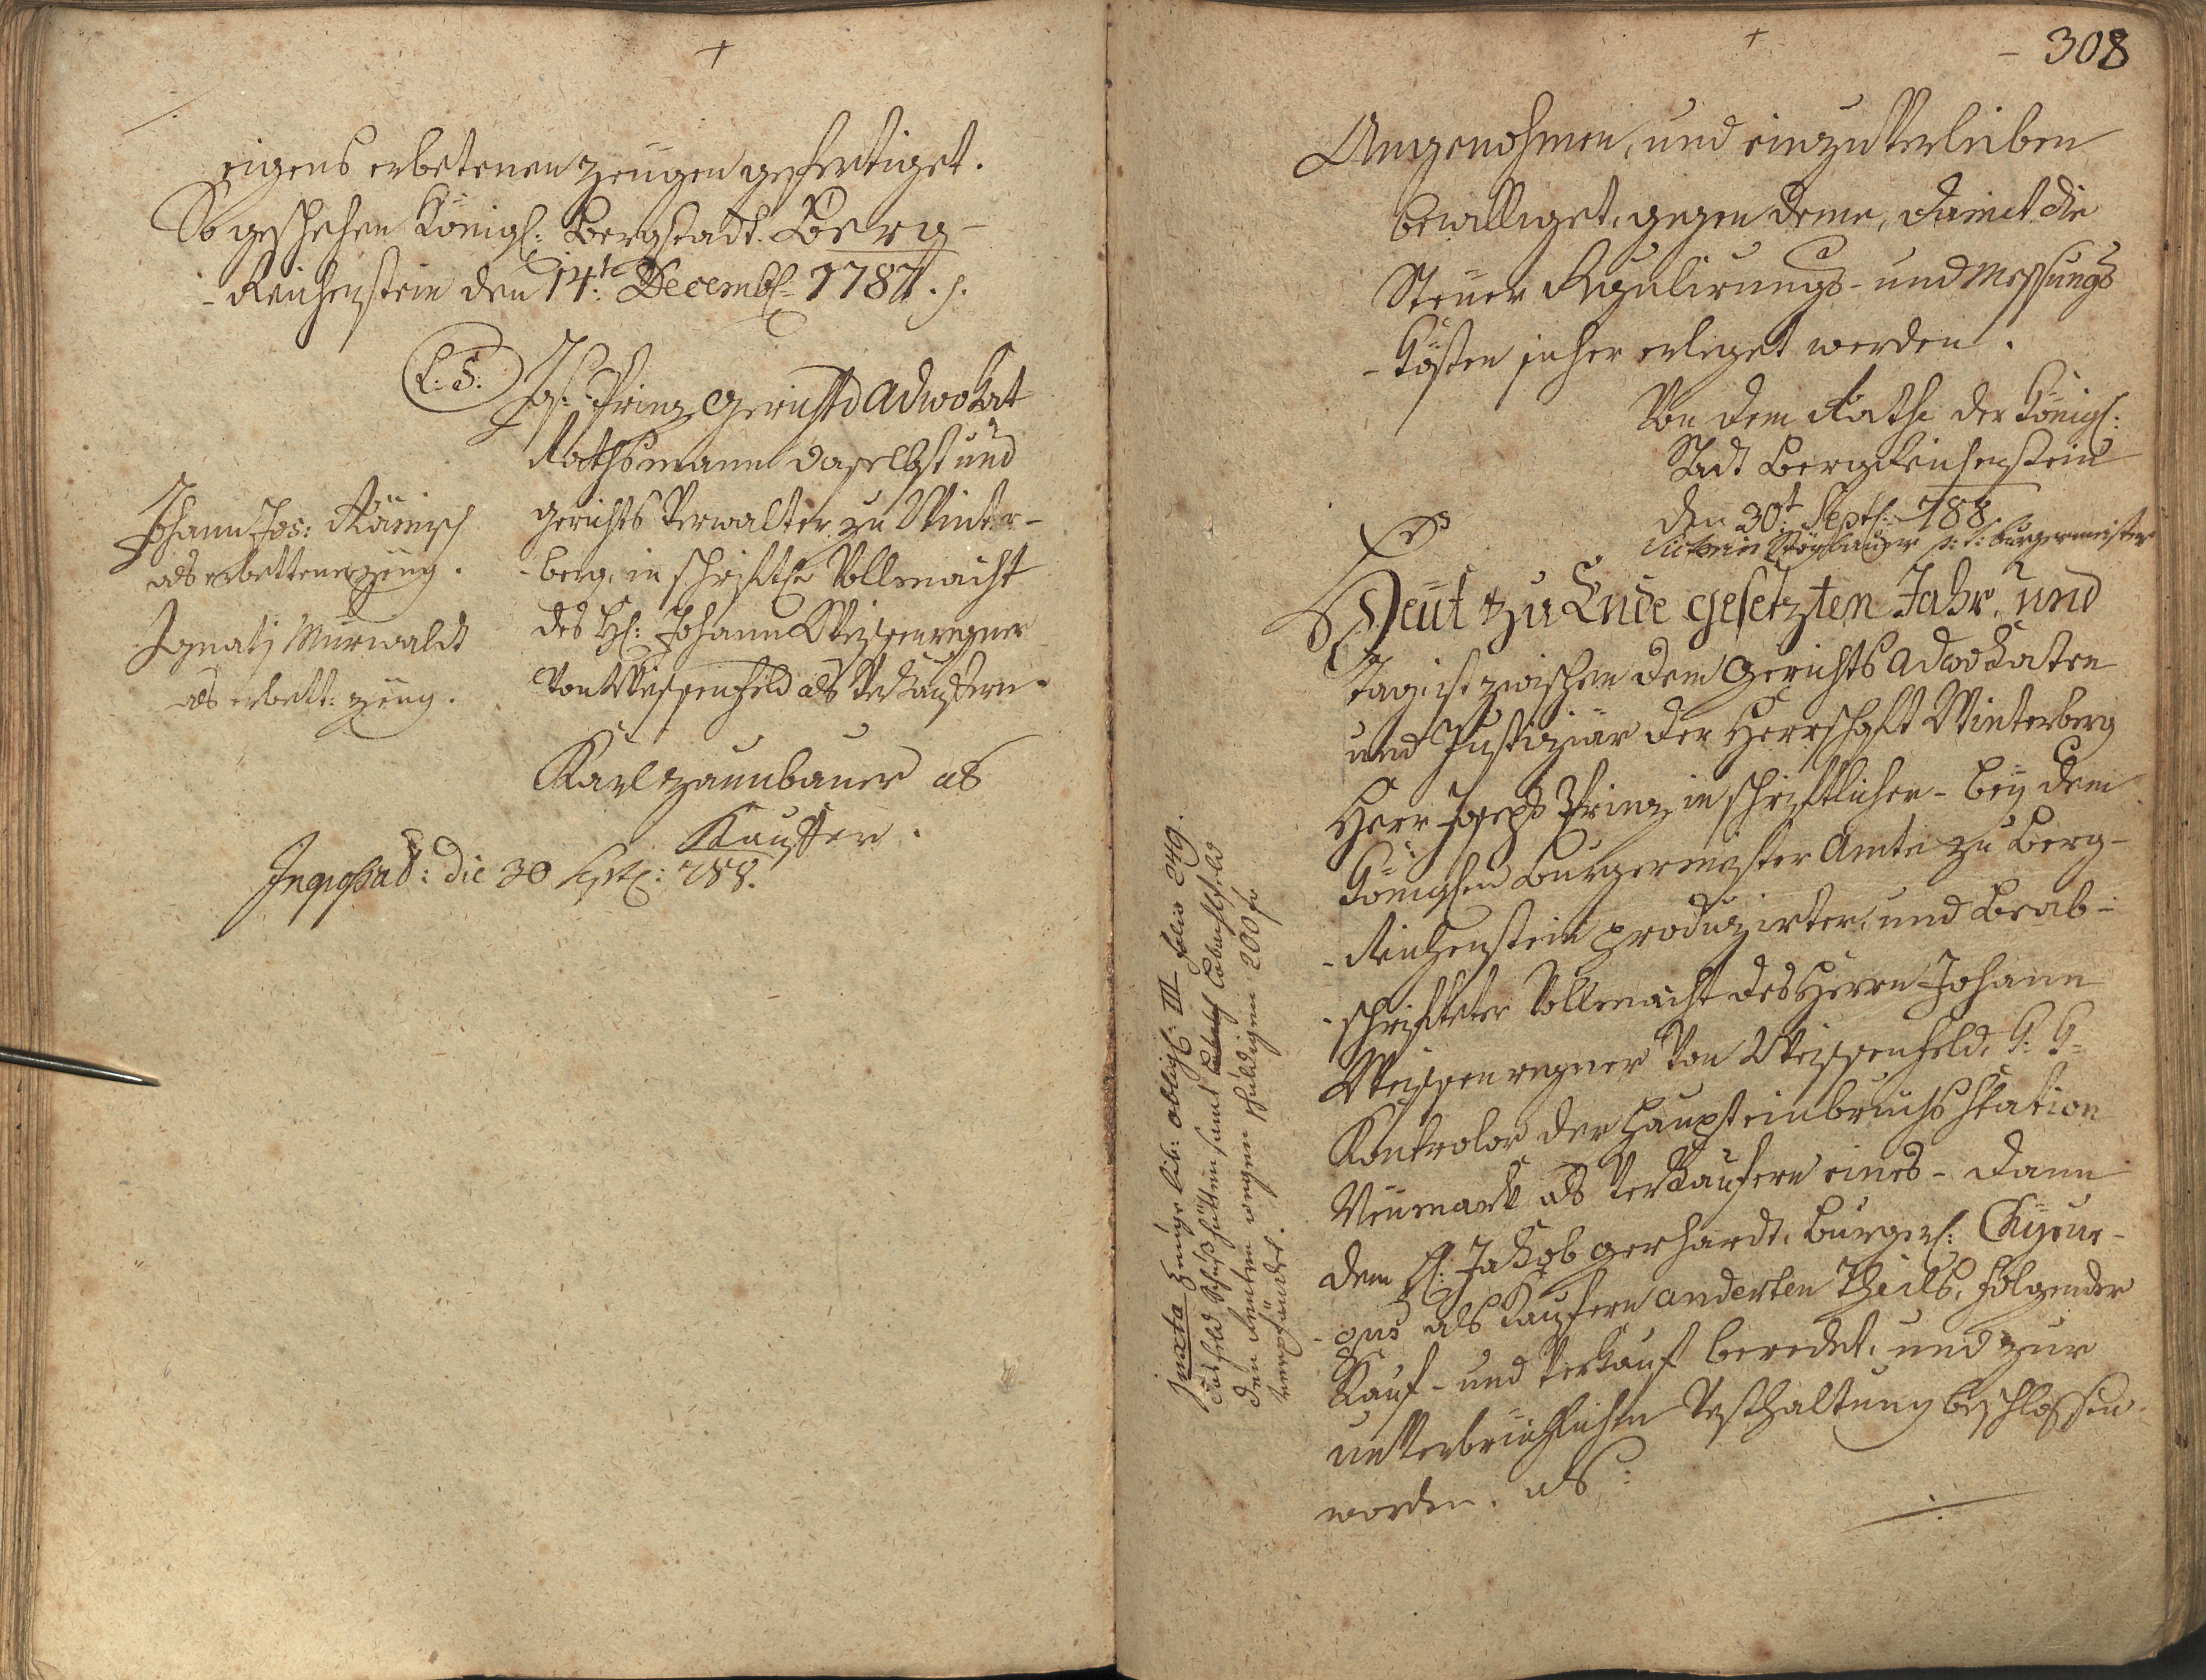 eigens erbetenen Zeugen gefertiget.
So geschehen Königl: Bergstadt Berg-
-Reichenstein den 14te Decemb: 1787. 
L: S.
Jos: Prinz Gerichts Adwokat
Rathsmann daselbst und
Gerichts Verwalter zu Winter-
-berg, in schriftl: Vollmacht
des H: Johann Weissenregner
von Weissenfeld als Verkauffern.
Johann Jos: Rämisch
als erbettener Zeug.
Ignatz Murwaldt
als erbett: Zeug.
Karl Zaunbauer als
Kauffer.
Ingrossat: die 30 Sept: 788.
308
Angenohmen, und einzuverleiben
bewilliget, gegen deme, damit die
Steuer Regulirungs- und Messungs
-Kösten in her erleget werden.
Von dem Rathe der Königl:
Stadt Bergreichenstein
den 30t Sept: 788.
Stögbauer p: t: burgermeister
Heut zu Ende gesetzten Jahr, und
Tag, ist zwischen dem Gerichts Adwokaten
und Justiziär der Herrschaft Winterberg
Herr Joseph Prinz in schriftlicher- beÿ dem
Königlen Burgermeister Amte zu Berg-
-Reichenstein produzirter, und beab-
-schrifteter Vollmacht des Herrn Johann
Weissenregner von Weissenfeld, K: K:
Kontrolor der Haupteinbruchs Station
Neumark als Verkaufern eines- dann
dem H: Jakob Gerhardt, burgerl: Chyrur-
-gus als Kaufern anderten Theils, folgender
Kauf- und Verkauf beredet, und zur
unverbrüchlichen Vesthaltung beschlossen
worden, als:
Juxta Zeuge lib: obligl: III folio 249.
das feld Schußhütten samt Labenssfeld
den Renten wegen schuldigen 200 fr
verpfändet.